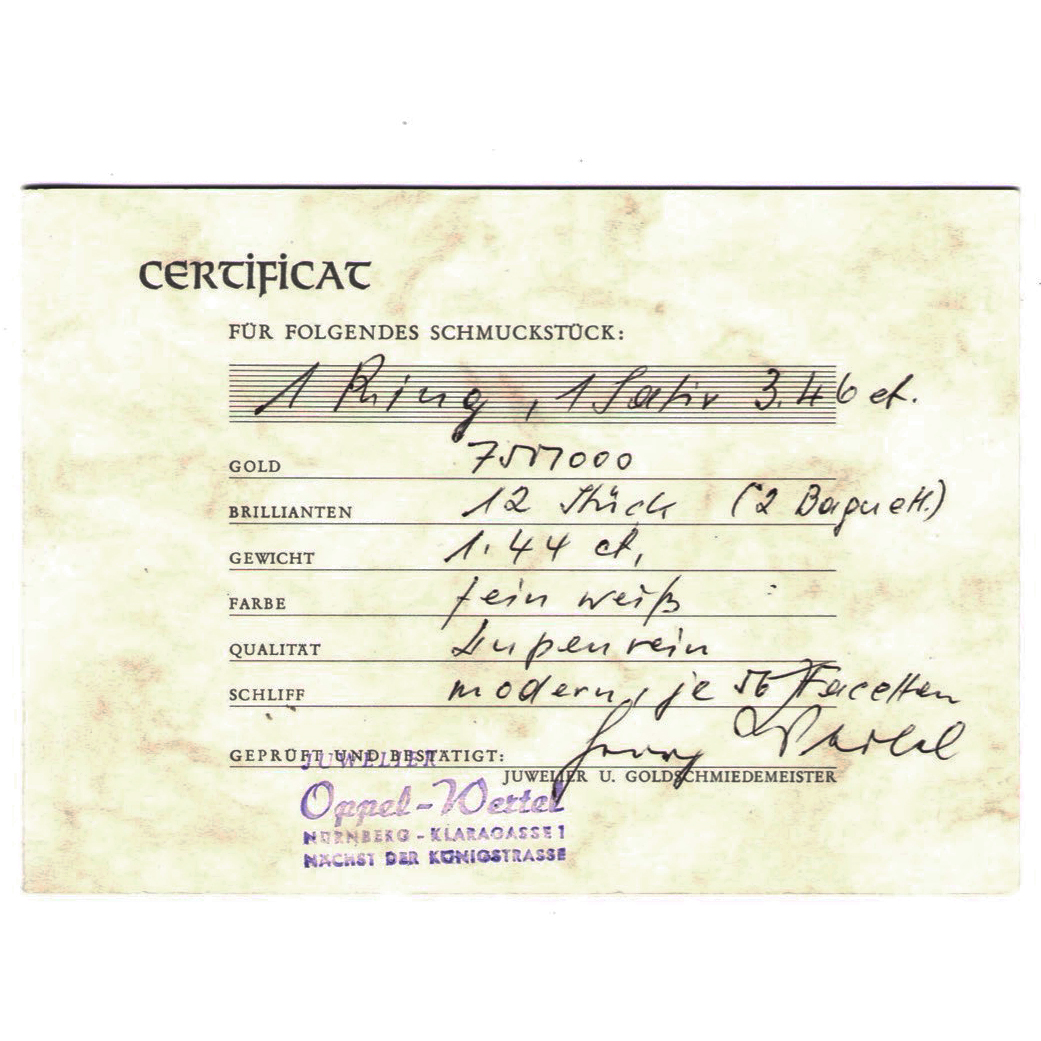 CERTIFICAT
FÜR FOLGENDES SCHMUCKSTÜCK:
1 Ring, 1 Safir 3.46 ct.
GOLD 750/000
BRILLIANTEN 12 Stück (2 Baguett.)
GEWICHT 1.44 ct,
FARBE fein weiß
QUALITÄT Lupenrein
SCHLIFF modern, je 56 Facetten
GEPRÜFT UND BESTÄTIGT: Georg
JUWELIER U. GOLDSCHMIEDEMEISTER
JUWELIER
Oppel-Wertel
NÜRNBERG - KLARAGASSE 1
NÄCHST DER KÖNIGSTRASSE